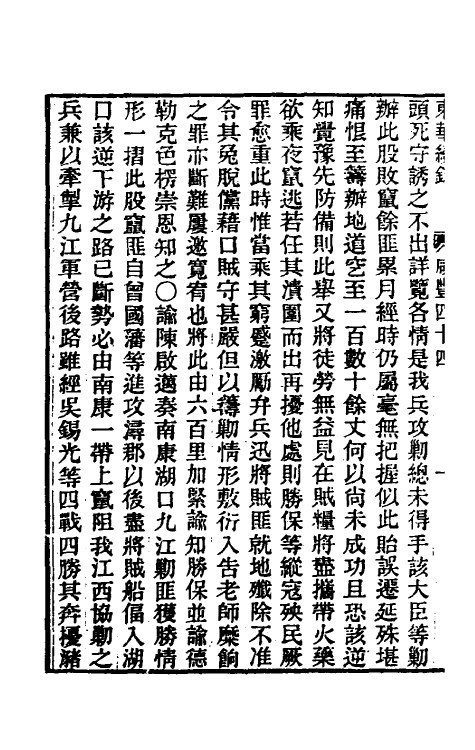 東華續錄　咸豐四十四　一
頭死守誘之不出詳覽各情是我兵攻勦總未得手該大臣等勦
辦此股敗竄餘匪累月經時仍屬毫無把握似此貽誤遷延殊堪
痛恨至籌辦地道空至一百數十餘丈何以尚未成功且恐該逆
知覺豫先防備則此舉又將徒勞無益見在賊糧將盡攜帶火藥
欲乘夜竄逃若任其潰圍而出再擾他處則勝保等縱寇殃民厥
罪愈重此時惟當乘其窮蹙激勵弁兵迅將賊匪就地殲除不准
令其免脫儻藉口賊守甚嚴但以籌勦情形敷衍入告老師糜餉
之罪亦斷難屢邀寬宥也將此由六百里加緊諭知勝保並諭德
勒克色楞崇恩知之〇諭陳啟邁奏南康湖口九江勦匪獲勝情
形一摺此股竄匪自曾國藩等進攻潯郡以後盡將賊船偪入湖
口該逆下游之路已斷勢必由南康一帶上竄阻我江西協勦之
兵兼以牽掣九江軍營後路雖經吳錫光等四戰四勝其奔擾豬